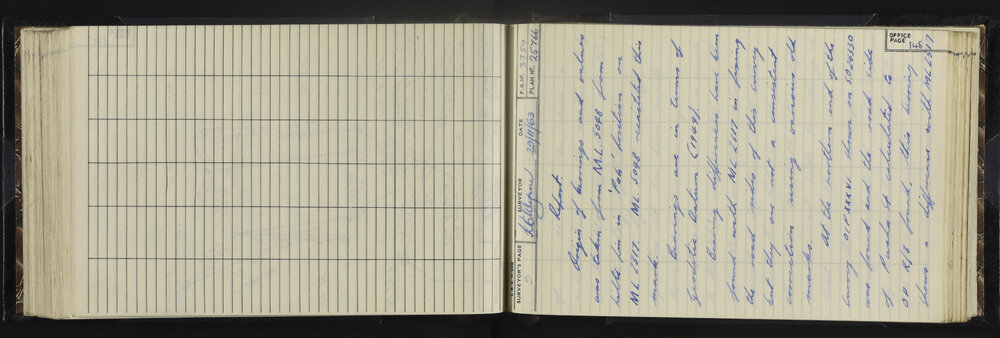 OFFICE PAGE 148
SURVEYOR'S PAGE
SURVEYOR
DATE 29/11/63
F.B. No. 3759
PLAN No. 25766
Report.
Origin of bearings and values
was taken from ML 5048 from
in portion on
ML 2517. ML 5048 reinstated this
mark.
Bearings are in terms of
Geodetic Datum (1949).
Bearing differences have been
found with ML 2517 in fixing
the road sides of this survey
but they are not a consistent
correction using various old
marks.
At the northern end of the
survey OIP XXXVI shown on SO 24530
was found and the road side
of it calculated to
OP R/8 found, this bearing
shows a difference with ML 2517